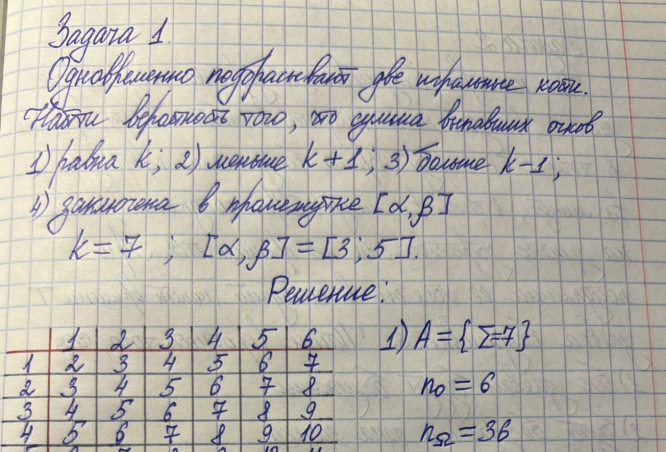 Задача 1.
Одновременно подбрасывают две игральные кости.
Найти вероятность того, что сумма выпавших очков
1) равна k; 2) меньше k+1; 3) больше k-1;
4) заключена в промежутке [α,β]
k=7 ; [α,β]=[3;5].
Решение:
1 2 3 4 5 6
1 2 3 4 5 6 7
2 3 4 5 6 7 8
3 4 5 6 7 8 9
4 5 6 7 8 9 10
1) A={Σ=7}
n₀=6
n_Ω=36